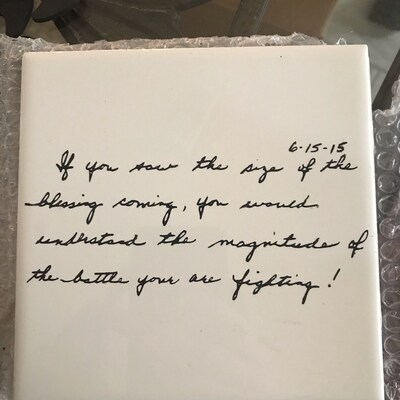 6-15-15
If you saw the size of the
blessing coming, you would
understand the magnitude of
the battle your are fighting!